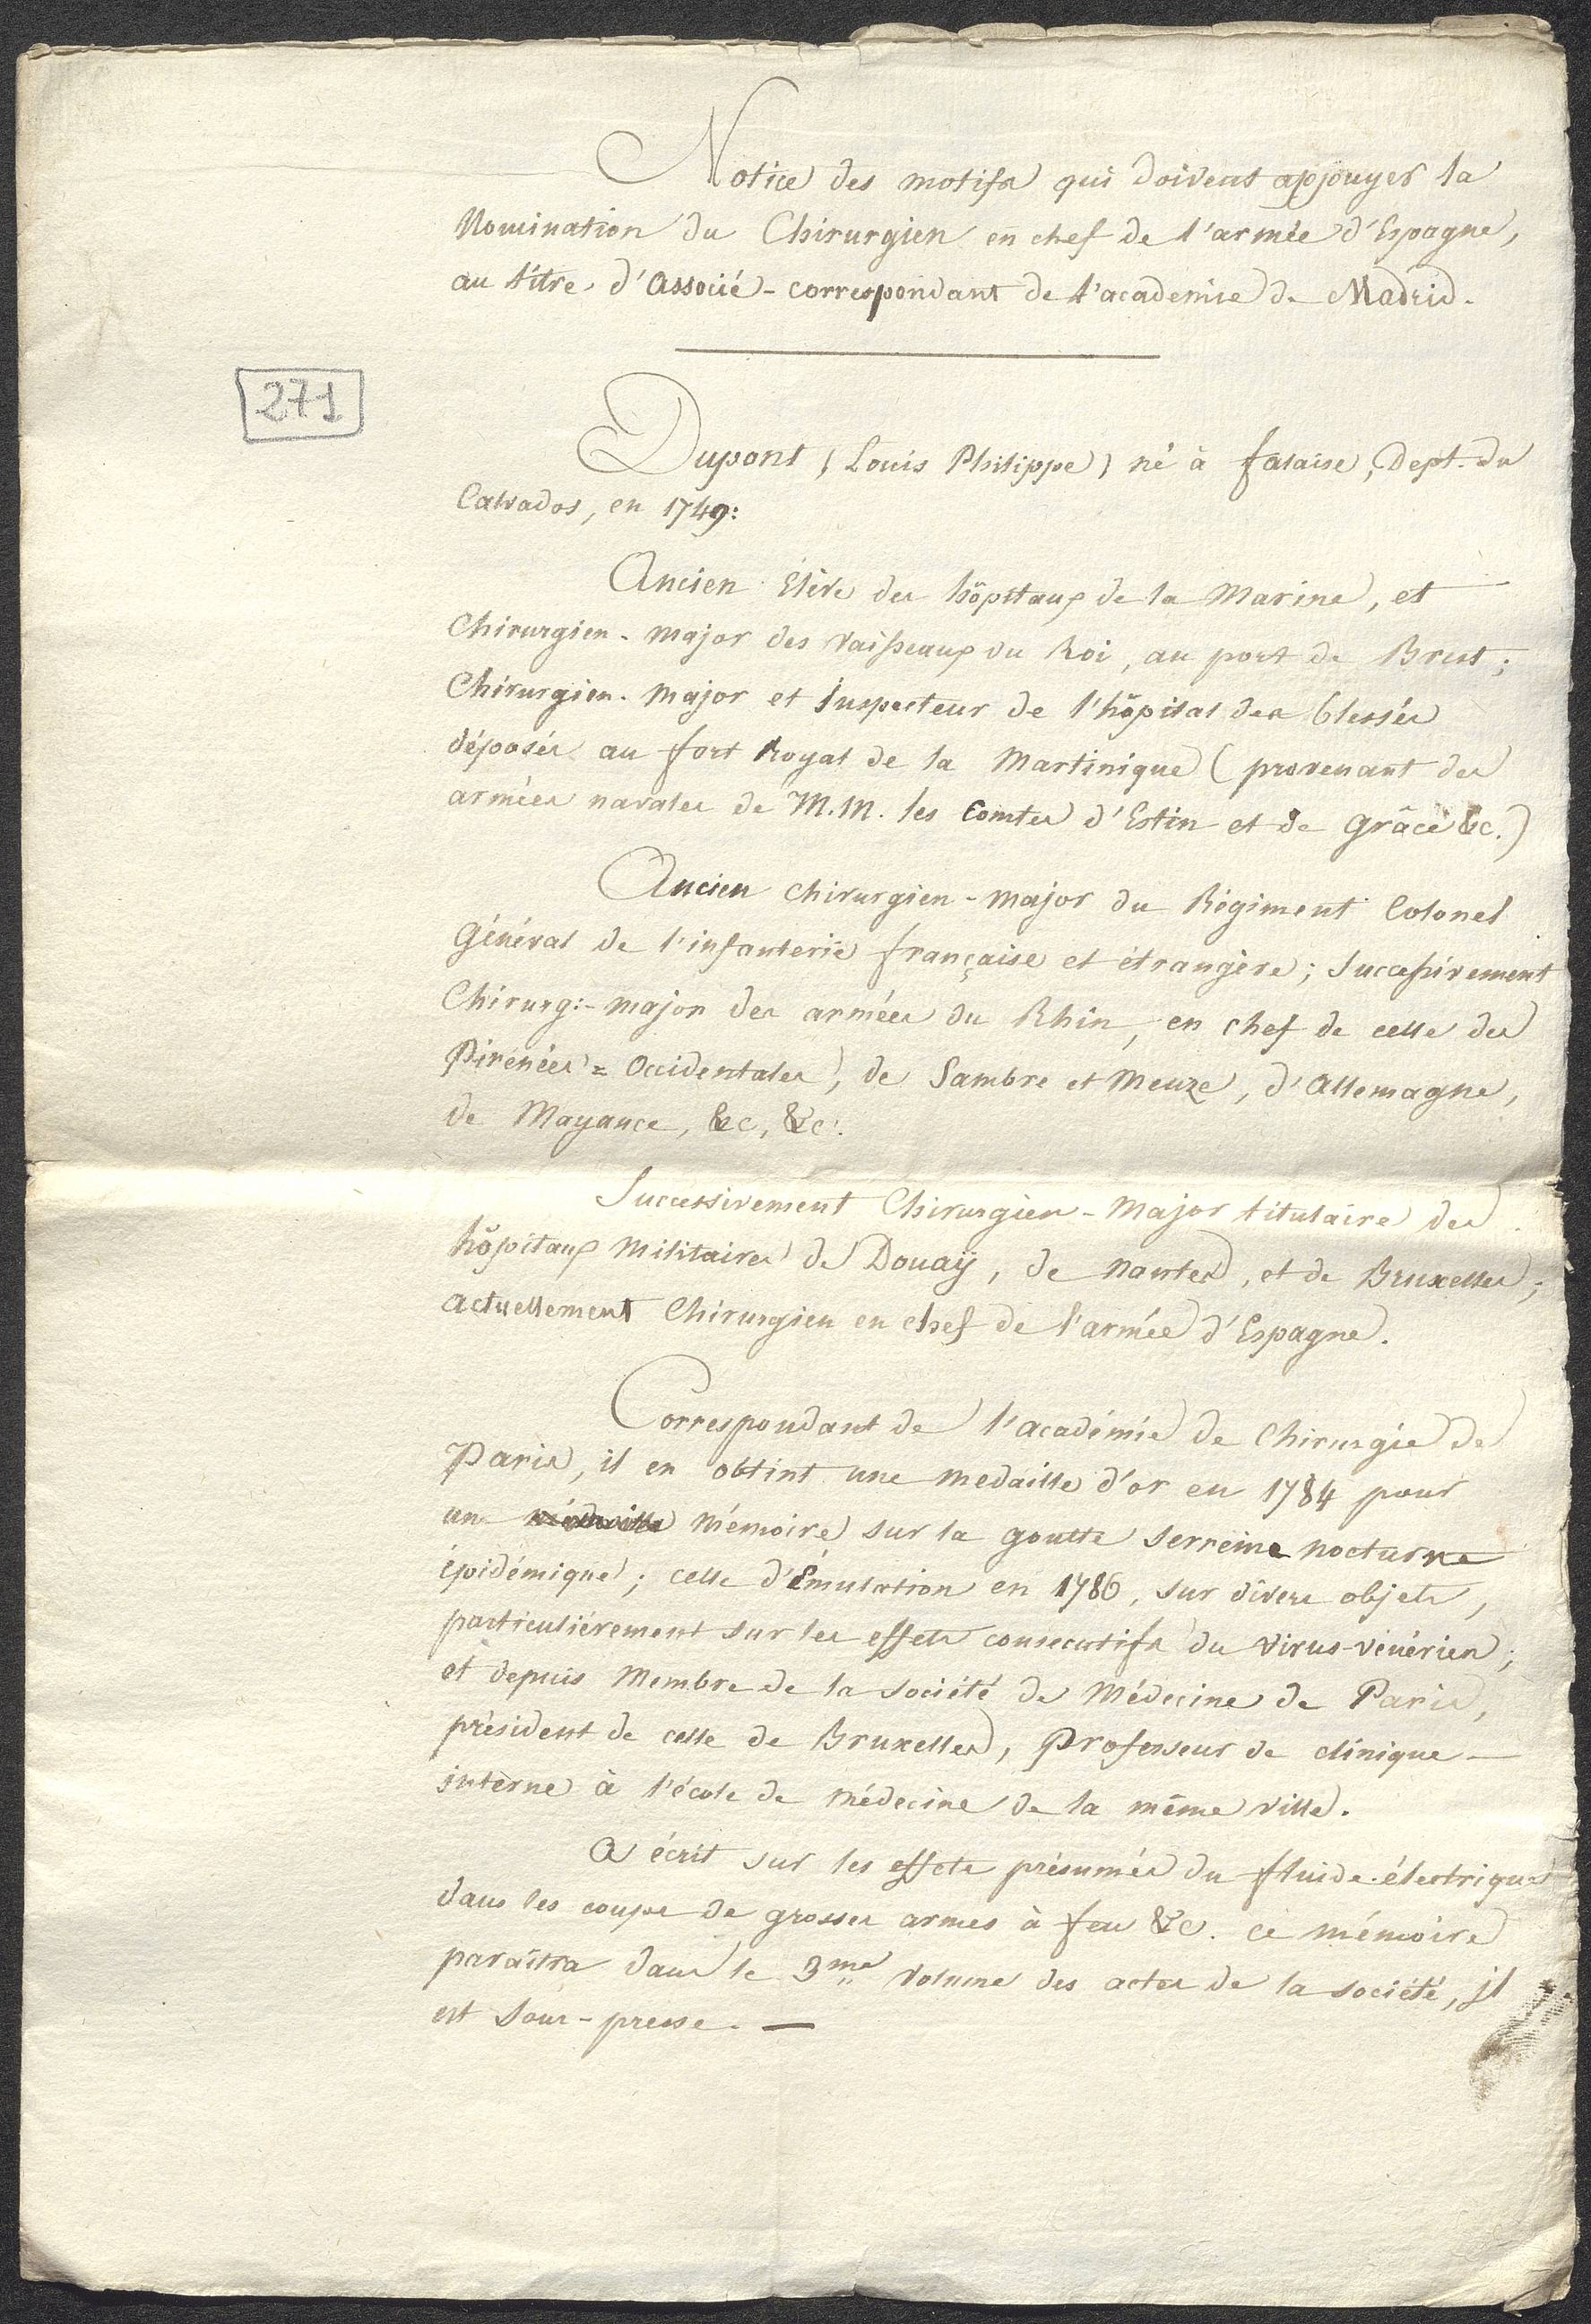 Notice des motifs qui doivent appouyer la
Nomination du Chirurgien en chef de l'armée d'Espagne,
au titre d'Associé-correspondant de l'academie de Madrid.
271
Dupont (Louis Philippe) né à falaise, Dept. du
Calvados, en 1749:
Ancien Elève des hôpitaux de la Marine, et
Chirurgien-major des Vaisseaux du Roi, au port de Brest;
Chirurgien-major et Inspecteur de l'hôpital des blessés
déposés au fort Royal de la Martinique (provenant des
armées navales de M.M. les Comtes d'Estin et de Grâce &c.)
Ancien chirurgien-major du Régiment Colonel
Général de l'infanterie française et étrangère; Successivement
Chirurg:-major des armées du Rhin, en chef de celle des
Pirénées=Occidentales, de Sambre et Meuze, d'Allemagne,
de Mayance, &c, &c.
Successivement Chirurgien-Major titulaire des
hôpitaux Militaires de Douaÿ, de Nantes, et de Bruxelles;
actuellement Chirurgien en chef de l'armée d'Espagne.
Correspondant de l'académie de Chirurgie de
Paris, il en obtint une medaille d'or en 1784 pour
un Mémoire sur la goutte serreine nocturne
épidémique; celle d'Émulation en 1786, sur divers objets,
particuliérement sur les effets consecutifs du Virus-vénérien;
et depuis Membre de la société de Médecine de Paris,
président de celle de Bruxelles, Professeur de clinique
interne à l'école de Médecine de la même ville.
A écrit sur les effets présumés du fluide-électrique
dans les coups de grosses armes à feu &c. ce mémoire
paraîtra dans le 3me volume des actes de la société, il
est sous-presse.